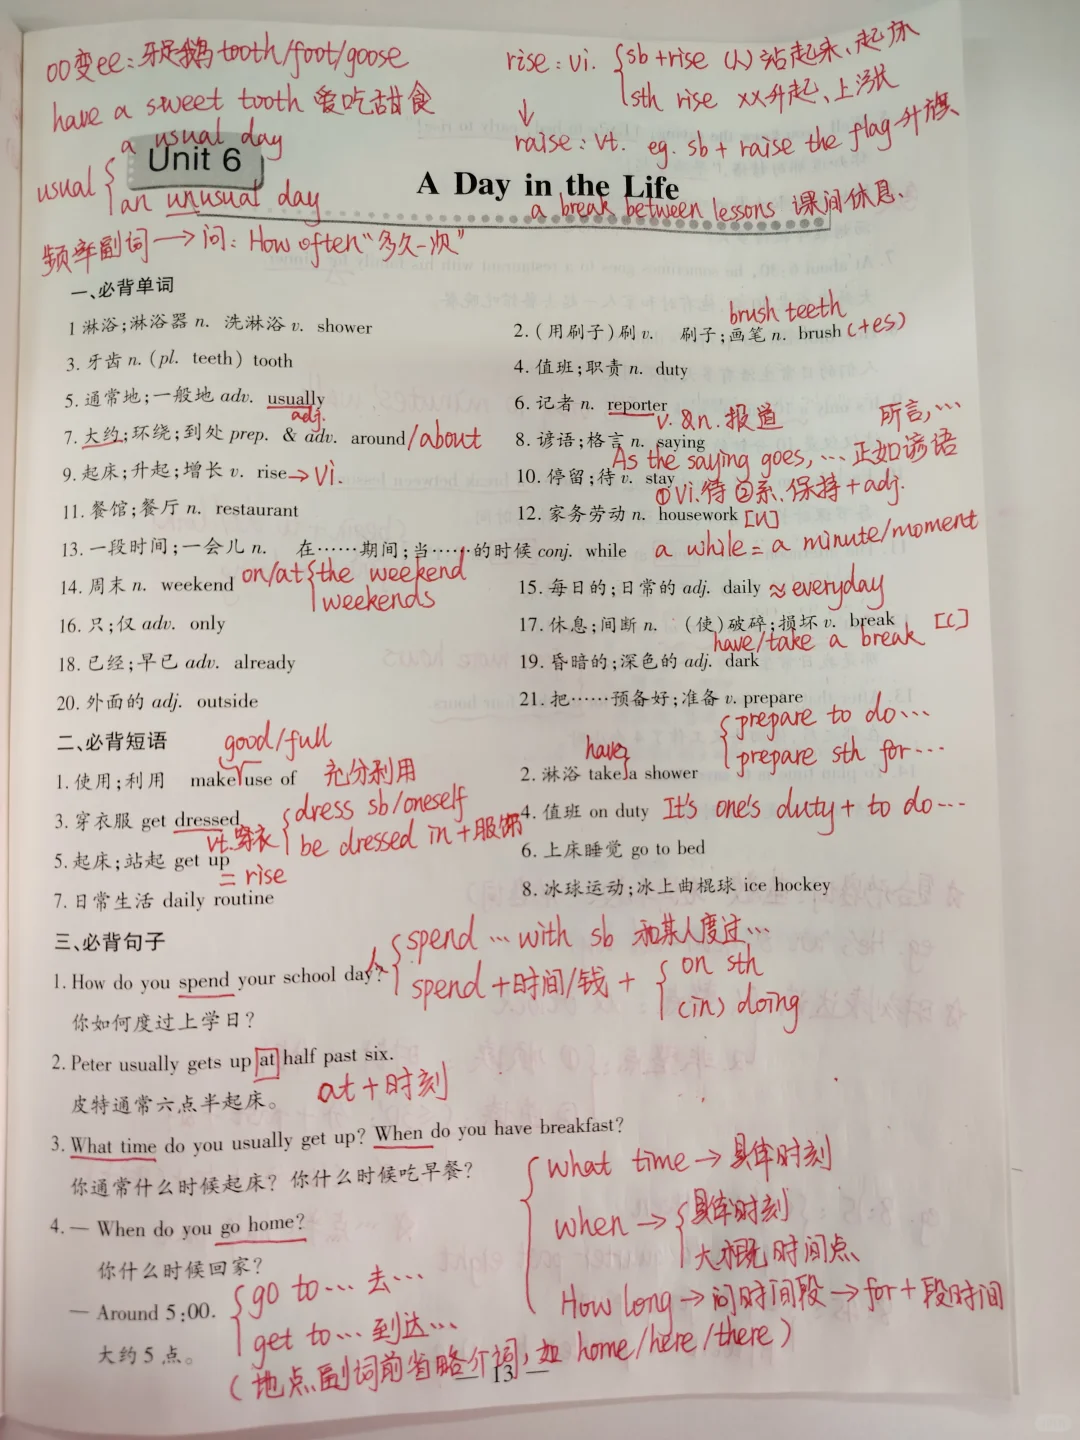 oo变ee：牙足鹅 tooth/foot/goose
have a sweet tooth 爱吃甜食
rise：vi. { sb+rise (人)站起来、起床
sth rise xx升起、上涨
↓
raise：vt. eg. sb + raise the flag 升旗
usual { a usual day
an unusual day
Unit 6
A Day in the Life
a break between lessons 课间休息.
频率副词→问：How often“多久一次”
一、必背单词
1 淋浴;淋浴器 n. 洗淋浴 v. shower
brush teeth
2. (用刷子)刷 v. 刷子;画笔 n. brush (+es)
3. 牙齿 n. (pl. teeth) tooth
4. 值班;职责 n. duty
5. 通常地;一般地 adv. usually
adj.
6. 记者 n. reporter
v. &n. 报道
7. 大约;环绕;到处 prep. & adv. around/about
8. 谚语;格言 n. saying
所言,…
As the saying goes, … 正如谚语
9. 起床;升起;增长 v. rise→vi.
10. 停留;待 v. stay
①vi.待 ②系.保持+adj.
11. 餐馆;餐厅 n. restaurant
12. 家务劳动 n. housework [U]
13. 一段时间;一会儿 n. 在……期间;当……的时候 conj. while a while = a minute/moment
14. 周末 n. weekend on/at { the weekend
weekends
15. 每日的;日常的 adj. daily ≈ everyday
16. 只;仅 adv. only
17. 休息;间断 n. (使)破碎;损坏 v. break [C]
have/take a break
18. 已经;早已 adv. already
19. 昏暗的;深色的 adj. dark
20. 外面的 adj. outside
21. 把……预备好;准备 v. prepare
{ prepare to do…
prepare sth for…
二、必背短语
good/full
1. 使用;利用 make use of 充分利用
have
2. 淋浴 take a shower
3. 穿衣服 get dressed
vt.穿衣 { dress sb/oneself
be dressed in +服饰
4. 值班 on duty It's one's duty + to do…
5. 起床;站起 get up
= rise
6. 上床睡觉 go to bed
7. 日常生活 daily routine
8. 冰球运动;冰上曲棍球 ice hockey
三、必背句子
1. How do you spend your school day?
人 { spend … with sb 和某人度过…
spend +时间/钱 + { on sth
(in) doing
你如何度过上学日?
2. Peter usually gets up at half past six.
at + 时刻
皮特通常六点半起床。
3. What time do you usually get up? When do you have breakfast?
你通常什么时候起床? 你什么时候吃早餐?
{ what time → 具体时刻
when → { 具体时刻
大概时间点
How long → 问时间段 → for + 段时间
4. — When do you go home?
你什么时候回家?
— Around 5:00.
大约5点。
{ go to … 去…
get to … 到达…
(地点副词前省略介词, 如 home/here/there)
— 13 —